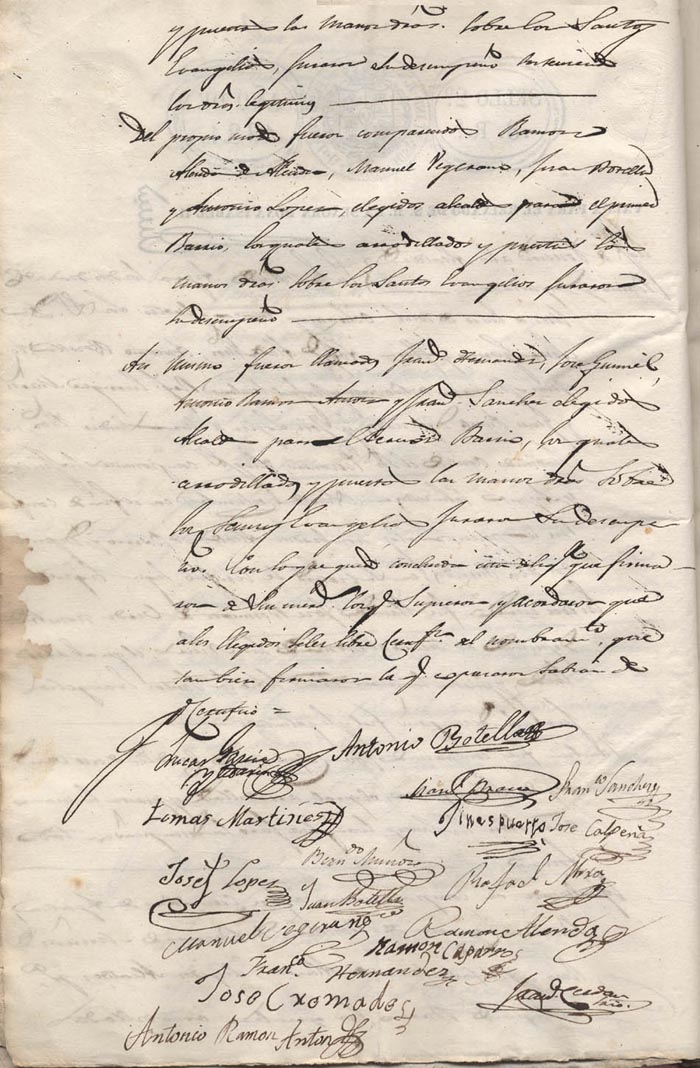 y puesta las manos dras. sobre los Santos
Evangelios, juraron su desempeño
los dros. legitimos
Del propio modo fueron comparecidos Ramon
Alenda de Alenda, Manuel Vegerano, Juan Botella
y Antonio Lopez elegidos alcaldes para el primer
Barrio, los quales arrodillados y puestas las
manos dras. sobre los Santos Evangelios juraron
su desempeño
Asi mismo fueron llamados Franco. Hernandez, Jose Gumiel,
Antonio Ramon Anton y Franco. Sanchez elegidos
Alcaldes para el Segundo Barrio, los quales
arrodillados y puestas las manos dras. sobre
los Santos Evangelios juraron su desempe-
ño. Con lo que quedó concluida esta dilig.a que firma-
ron de sus mercd. los q. supieron y acordaron que
a los elegidos se les libre Certifn. el nombramto. que
tambien firmaron los q. expresaron sabian de
q. Certifico =
Lucas Garcia
Antonio Botella
Tomas Martines
Franco. Sanchez
Gines puerto
Jose Calpena
Josef Lopez
Berndo Muñoz
Juan Botella
Rafael Mira
Manuel Vegerano
Ramon Alenda
Ramon Caparros
Franco Hernandez
Jose Cremades
Antonio Ramon Anton